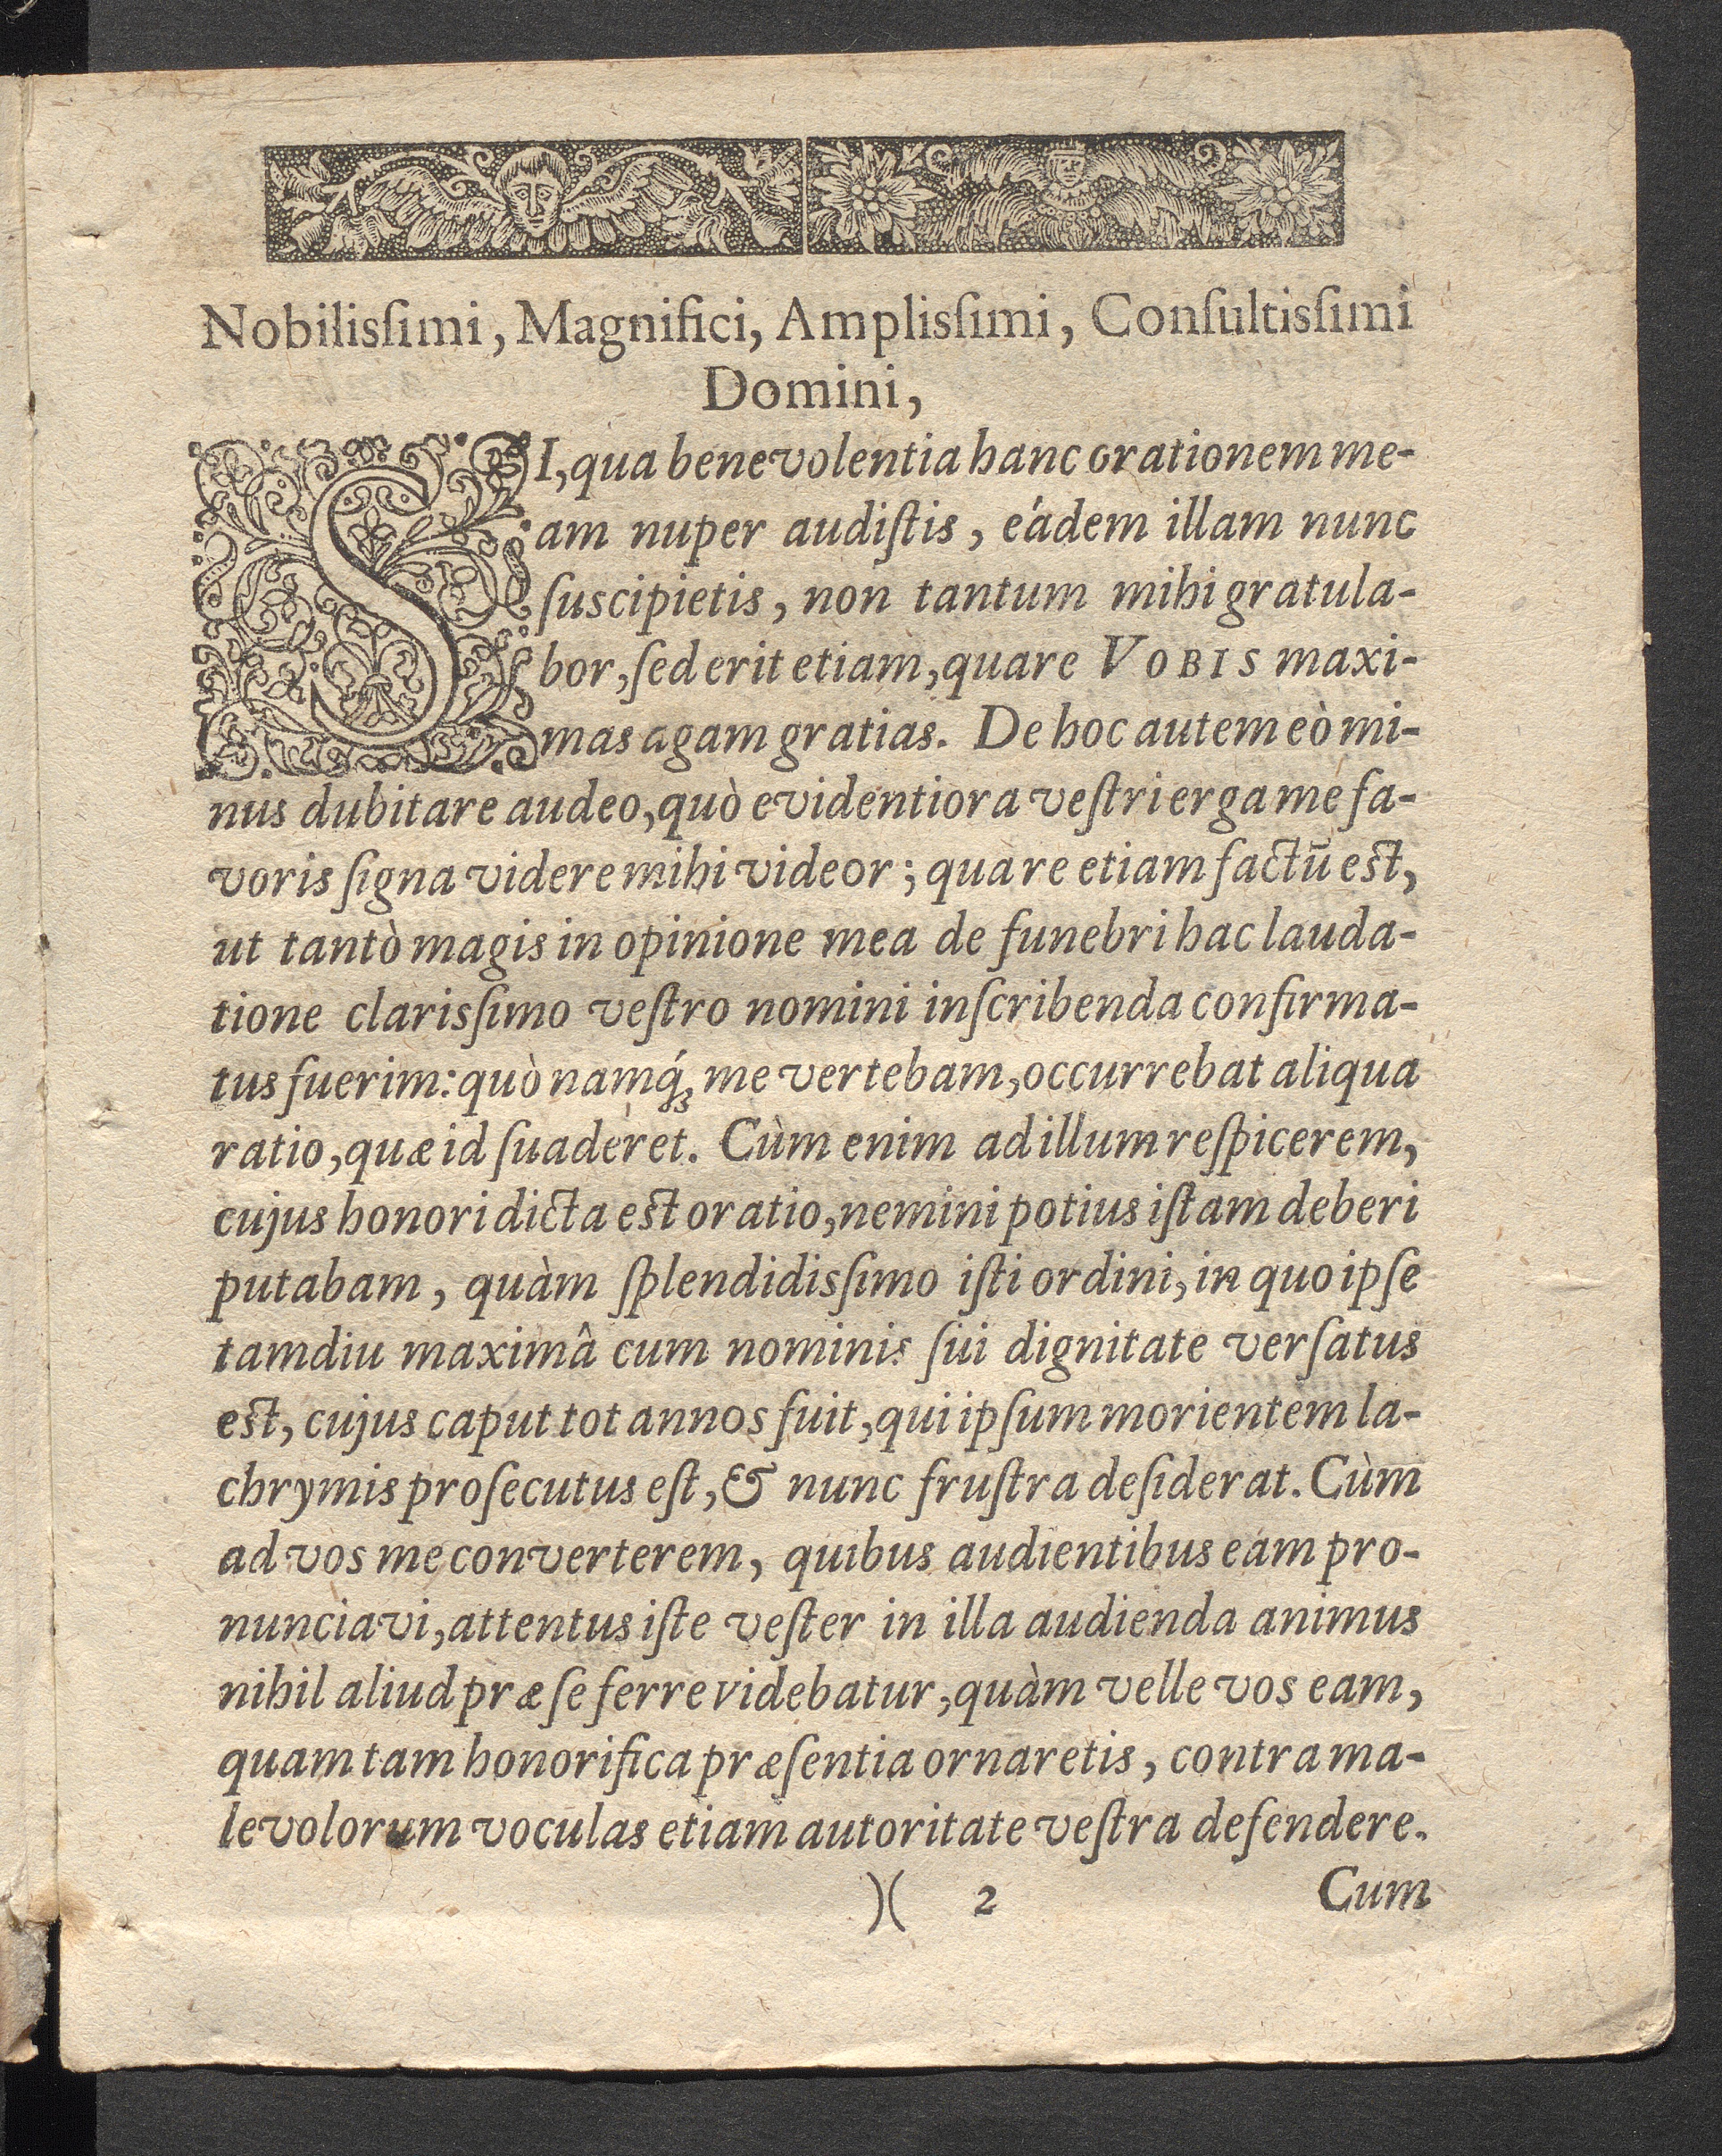 Nobilisſimi, Magnifici, Amplisſimi, Conſultisſimi
Domini,
SI, qua benevolentia hanc orationem me-
am nuper audiſtis, eádem illam nunc
ſuscipietis, non tantum mihi gratula-
bor, ſed erit etiam, quare VOBIS maxi-
mas agam gratias. De hoc autem eò mi-
nus dubitare audeo, quò evidentiora veſtri erga me fa-
voris ſigna videre mihi videor; quare etiam factū est,
ut tantò magis in opinione mea de funebri hac lauda-
tione clarisſimo veſtro nomini inſcribenda confirma-
tus fuerim: quò namq́ꝫ me vertebam, occurrebat aliqua
ratio, quæ id ſuaderet. Cùm enim ad illum reſpicerem,
cujus honori dicta est oratio, nemini potius iſtam deberi
putabam, quàm ſplendidisſimo iſti ordini, in quo ipſe
tamdiu maximâ cum nominis ſui dignitate verſatus
est, cujus caput tot annos fuit, qui ipſum morientem la-
chrymis proſecutus eſt, & nunc fruſtra deſiderat. Cùm
ad vos me converterem, quibus audientibus eam pro-
nunciavi, attentus iſte veſter in illa audienda animus
nihil aliud præ ſe ferre videbatur, quàm velle vos eam,
quam tam honorifica præſentia ornaretis, contra ma-
levolorum voculas etiam autoritate veſtra defendere.
)( 2 Cum